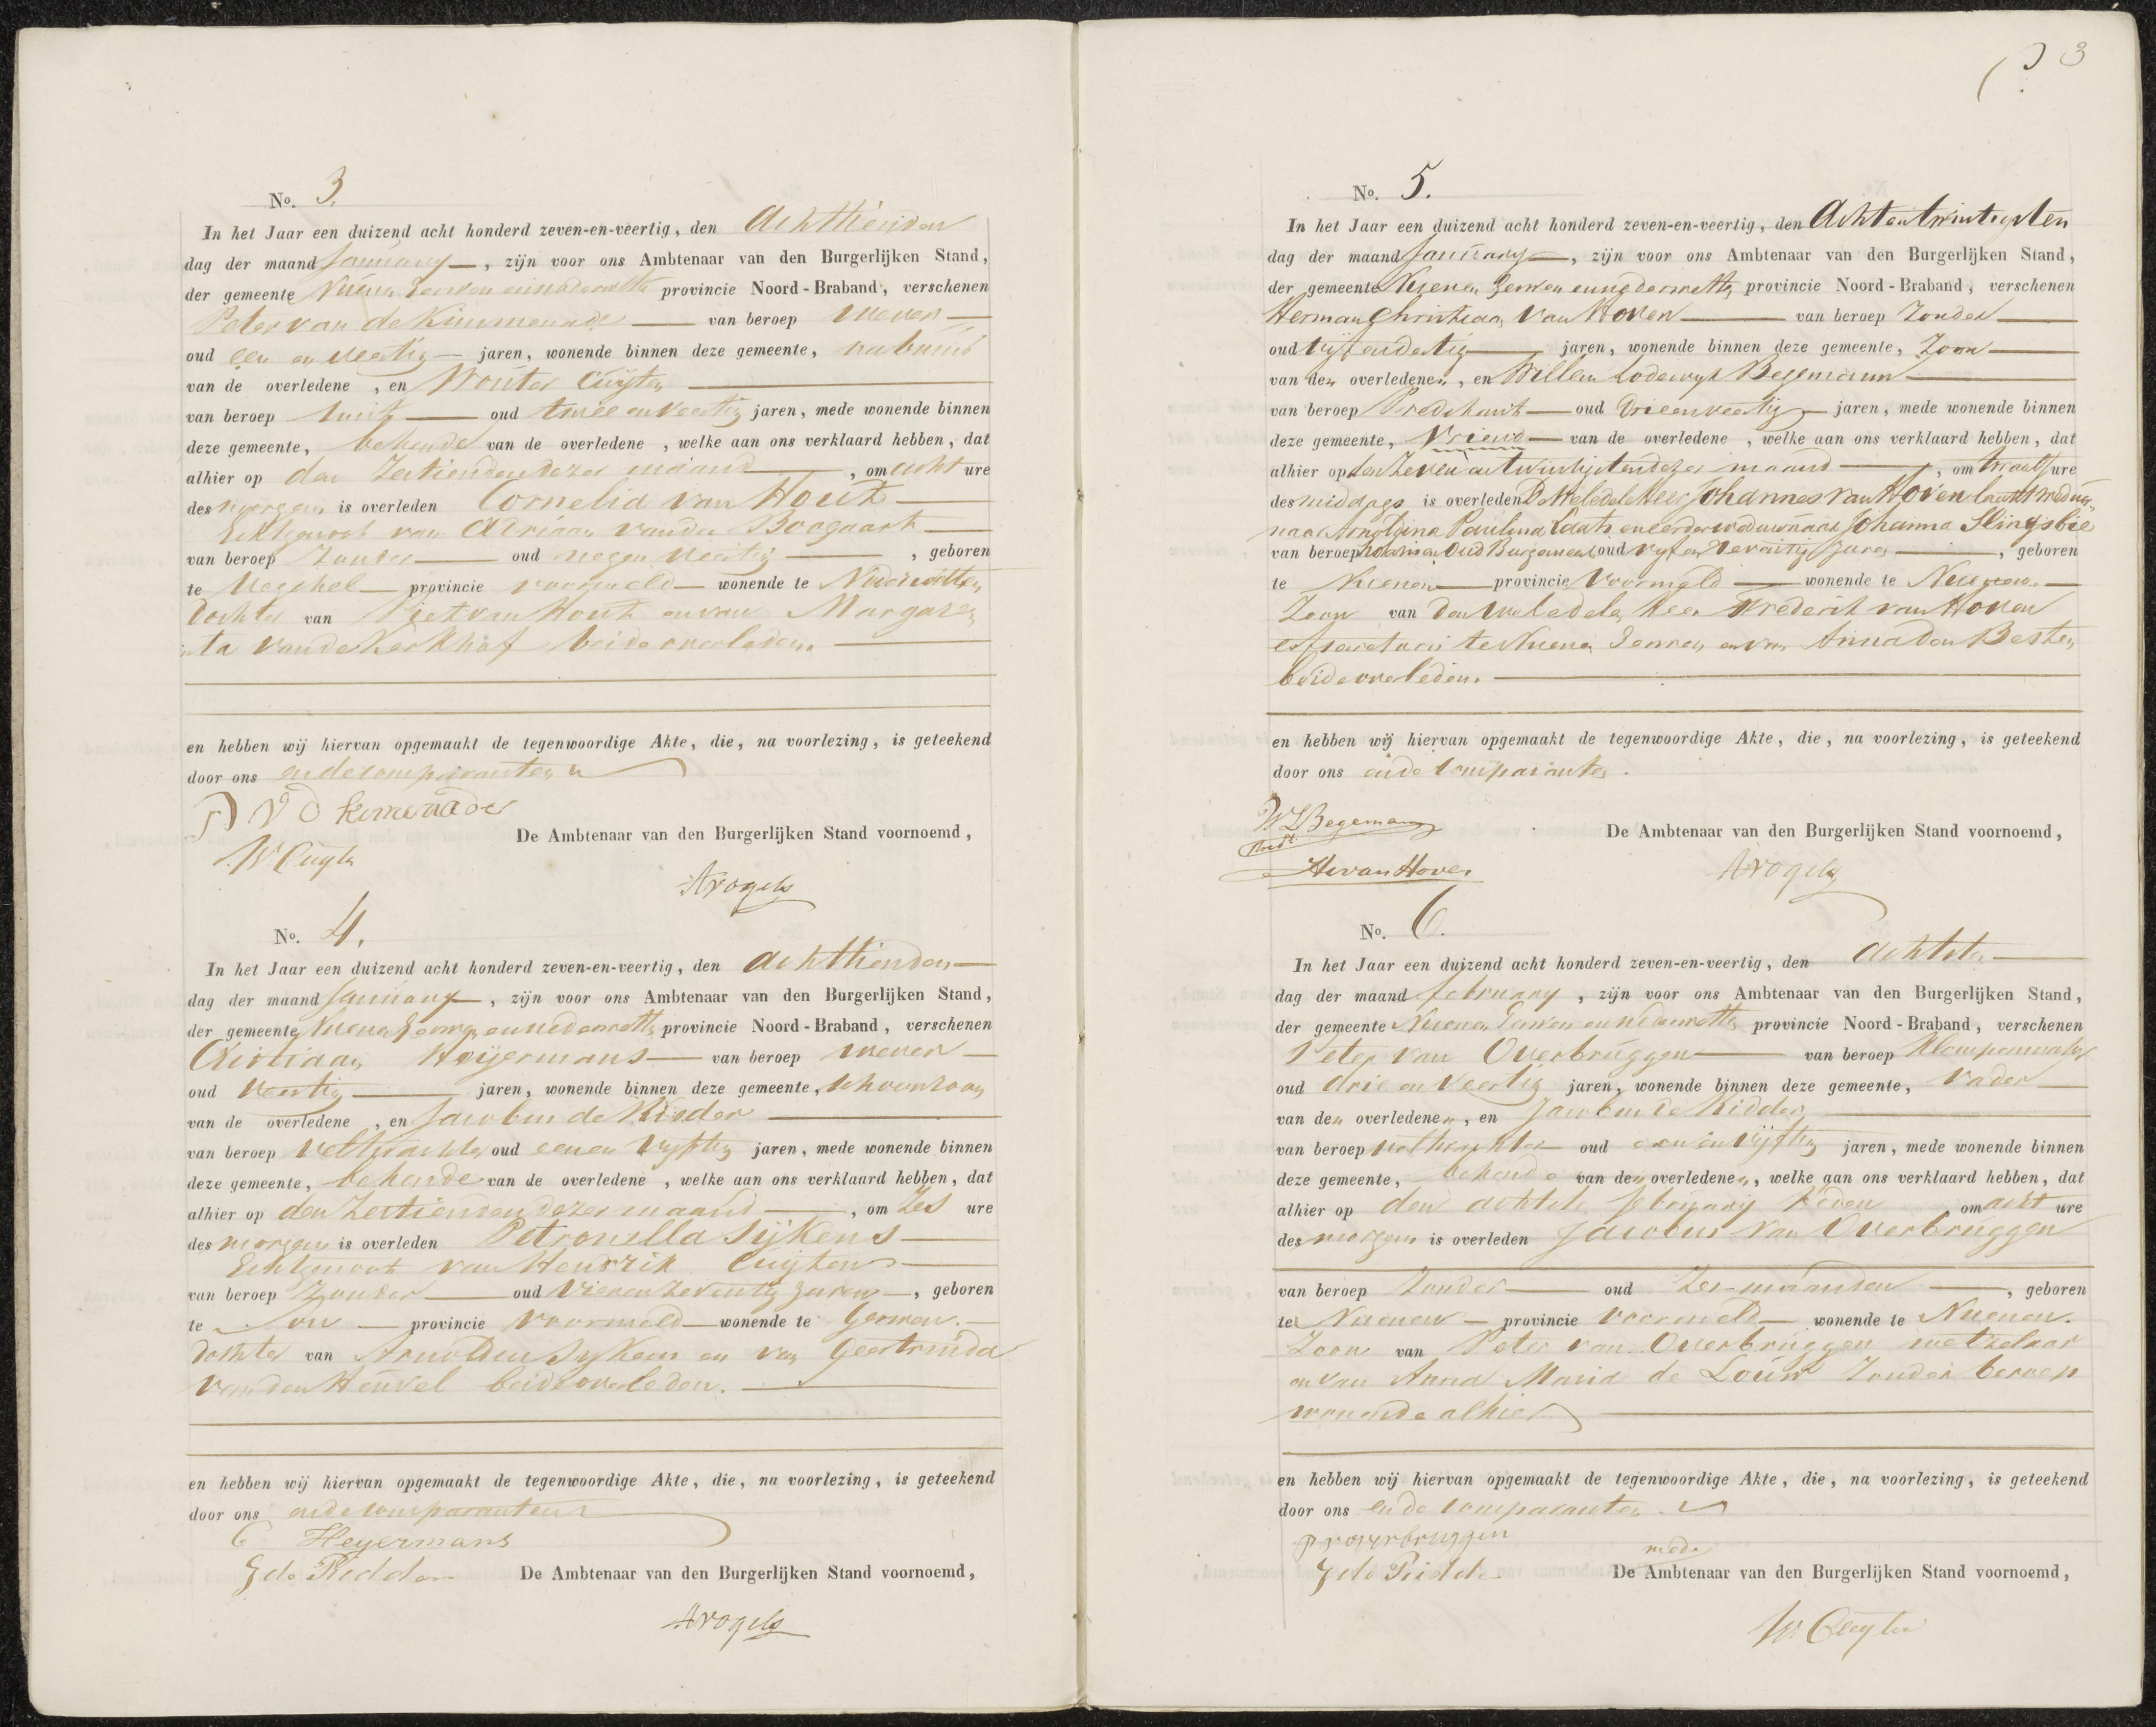 3
No. 3.
In het Jaar een duizend acht honderd zeven-en-veertig, den Achttienden
dag der maand January, zijn voor ons Ambtenaar van den Burgerlijken Stand,
der gemeente Nuenen Gerwen en Nederwetten provincie Noord-Braband, verschenen
Peter van de Kimmenade van beroep Wever
oud een en veertig jaren, wonende binnen deze gemeente, nabuur
van de overledene, en Wouter Cuyten
van beroep oud twee en veertig jaren, mede wonende binnen
deze gemeente, bekende van de overledene, welke aan ons verklaard hebben, dat
alhier op den Zestienden dezer maand, om acht ure
des morgens is overleden Cornelia van Hout
Echtgenoot van Adriaan vanden Boogaart
van beroep Zonder oud negen Veertig, geboren
te Veghel provincie voormeld wonende te Nederwetten
Dochter van Piet van Hout en van Margare
ta van de Kerkhof beide overleden.
en hebben wij hiervan opgemaakt de tegenwoordige Akte, die, na voorlezing, is geteekend
door ons en de comparanten
P V D Kemenade
De Ambtenaar van den Burgerlijken Stand voornoemd,
W Cuyten
A Vogels
No. 4.
In het Jaar een duizend acht honderd zeven-en-veertig, den Achttienden
dag der maand January, zijn voor ons Ambtenaar van den Burgerlijken Stand,
der gemeente Nuenen Gerwen en Nederwetten provincie Noord-Braband, verschenen
Cristiaan Heijermans van beroep wever
oud Veertig jaren, wonende binnen deze gemeente, schoonzoon
van de overledene, en Jacobus de Ridder
van beroep Veldwachter oud een en Vyftig jaren, mede wonende binnen
deze gemeente, bekende van de overledene, welke aan ons verklaard hebben, dat
alhier op den Zestienden dezer maand, om Zes ure
des morgens is overleden Petronella Sijkens
Echtgenoot van Hendrik Cuijten
van beroep Zonder oud Vier en Zeventig Jaren, geboren
te Son provincie Voormeld wonende te Gerwen.
Dochter van Arnoldus Sykens en van Geertruida
van den Heuvel beide overleden.
en hebben wij hiervan opgemaakt de tegenwoordige Akte, die, na voorlezing, is geteekend
door ons en de comparanten
C Heyermans
J de Ridder De Ambtenaar van den Burgerlijken Stand voornoemd,
A Vogels
No. 5.
In het Jaar een duizend acht honderd zeven-en-veertig, den Achtentwintigsten
dag der maand January, zijn voor ons Ambtenaar van den Burgerlijken Stand,
der gemeente Nuenen Gerwen en Nederwetten provincie Noord-Braband, verschenen
Herman Christiaan Van Hoven van beroep Zonder
oud vijf en dertig jaren, wonende binnen deze gemeente, Zoon
van den overledenen, en Willem Lodewyk Begemann
van beroep Predikant oud Drie en veertig jaren, mede wonende binnen
deze gemeente, Vriend van de overledene, welke aan ons verklaard hebben, dat
alhier op den Zeven en twintigsten dezer maand, om twaalf ure
des middags is overleden De Weledele Heer Johannes van Hoven laatst weduw
naar Arnoldina Paulina Laats en eerder weduwnaar Johanna Slingsbie
van beroep Notaris en Oud Burgemeester oud vyf en Zeventig Jaren, geboren
te Nuenen provincie Voormeld wonende te Nuenen.
Zoon van den weledelen heer Frederik van Hoven
secretaris te Nuenen Gerwen en van Anna den Besten
beide overleden.
en hebben wij hiervan opgemaakt de tegenwoordige Akte, die, na voorlezing, is geteekend
door ons en de Comparanten.
WL Begemann
Pred.
De Ambtenaar van den Burgerlijken Stand voornoemd,
van Hoven
A Vogels
No. 6.
In het Jaar een duizend acht honderd zeven-en-veertig, den Achtsten
dag der maand February, zijn voor ons Ambtenaar van den Burgerlijken Stand,
der gemeente Nuenen Gerwen en Nederwetten provincie Noord-Braband, verschenen
Peter van Overbruggen van beroep Klompenmaker
oud drie en Veertig jaren, wonende binnen deze gemeente, Vader
van den overledenen, en Jacobus de Ridder
van beroep veldwachter oud een en vijftig jaren, mede wonende binnen
deze gemeente, bekende van den overledenen, welke aan ons verklaard hebben, dat
alhier op den achtste february heden om acht ure
des morgens is overleden Jacobus Van Overbruggen
van beroep Zonder oud Zes maanden, geboren
te Nuenen provincie Voormeld wonende te Nuenen.
Zoon van Peter van Overbruggen metzelaar
en van Anna Maria de Louw Zonder beroep
wonende alhier
en hebben wij hiervan opgemaakt de tegenwoordige Akte, die, na voorlezing, is geteekend
door ons en de comparanten
P V overbruggen
mede
J de Ridder De Ambtenaar van den Burgerlijken Stand voornoemd,
W. Cuyten